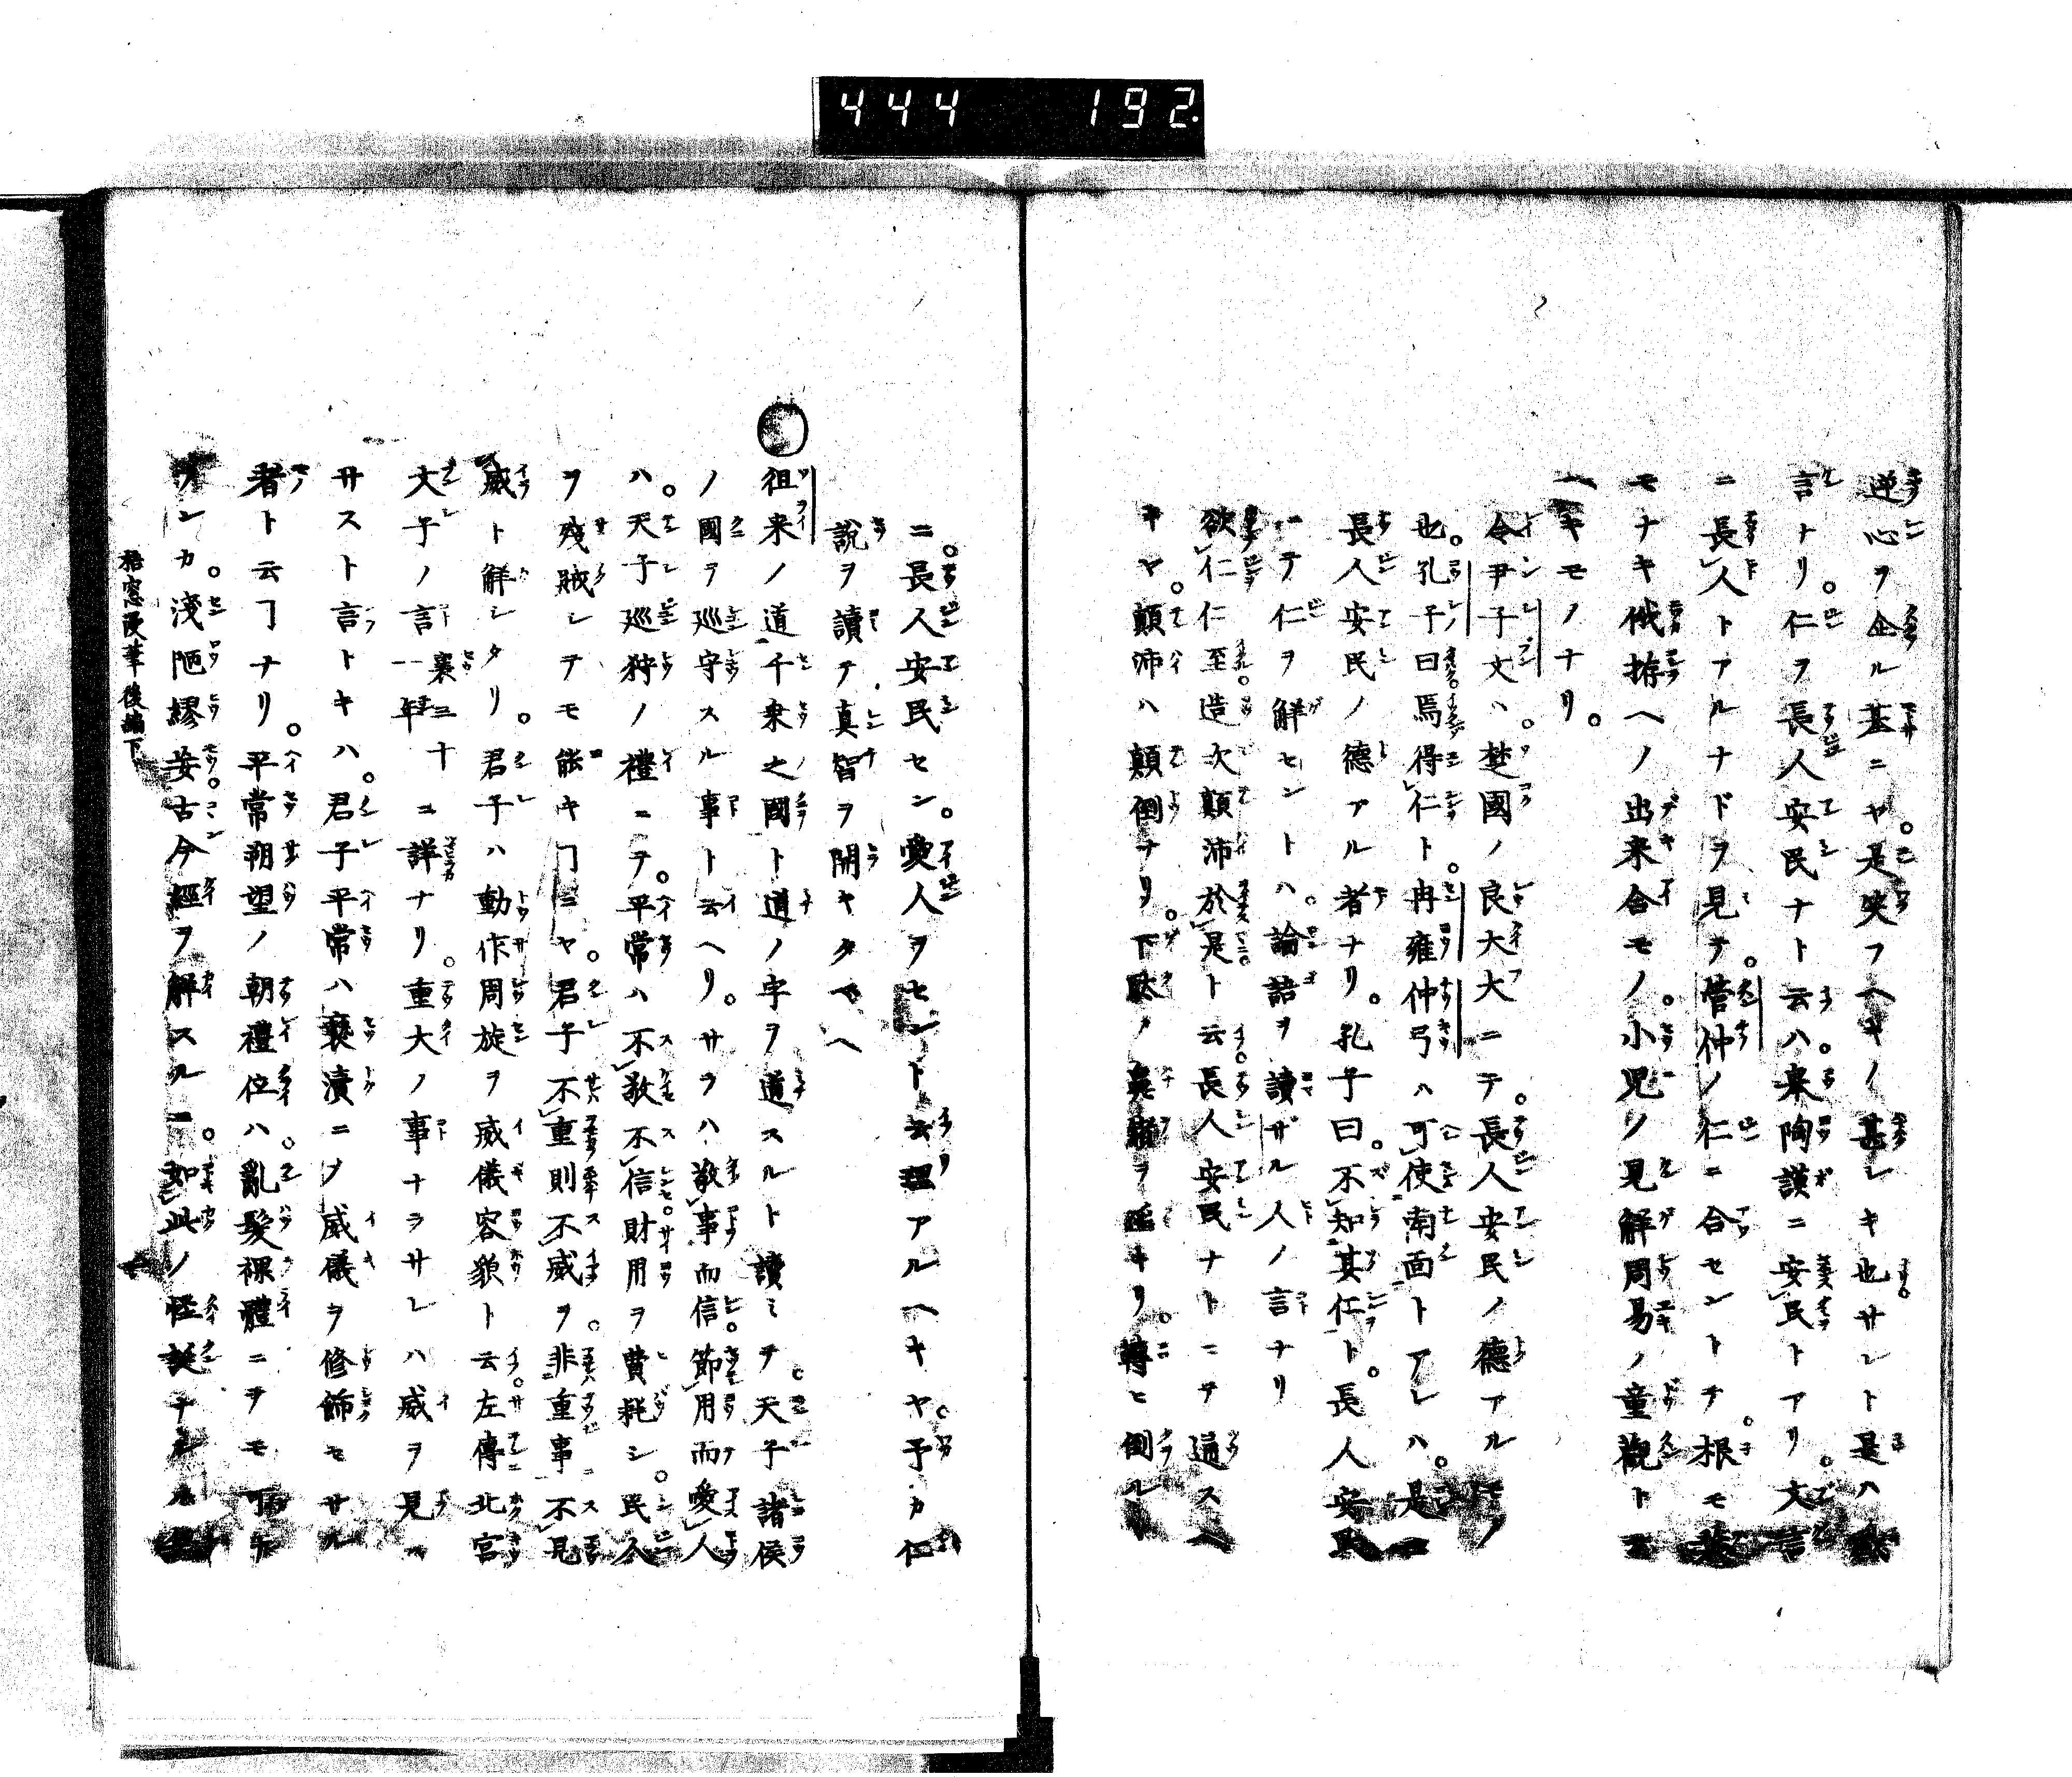 444 192.
逆心ヲ企ル基ニヤ。是笑フヘキノ甚シキ也サレト是ハ
言ナリ。仁ヲ長人安民ナト云ハ。皋陶謨ニ安民トアリ。文言
ニ長人トアルナドヲ見テ。管仲ノ仁ニ合セントテ。根モ葉
モナキ俄拵ヘノ出来合モノ。小児ノ見解周易ノ童觀ト云
ヘキモノナリ。
令尹子文ハ。楚國ノ良大夫ニテ。長人安民ノ德アルモノ
也。孔子曰焉得仁ト。冉雍仲弓ハ可使南面トアレハ。是ニ
長人安民ノ德アル者ナリ。孔子曰。不知其仁ト。長人安民
ニテ仁ヲ解セントハ。論語ヲ讀ザル人ノ言ナリ
欲仁仁至造次顛沛於是ト云長人安民ナトニテ通スヘ
キヤ。顛沛ハ顛倒ナリ。下駄ノ鼻緒ヲ踏キリ。轉ヒ倒ル
ニ。長人安民セン。愛人ヲセント云理アルヘキヤ。予カ仁
說ヲ讀テ真智ヲ開キタマヘ
○徂来ノ道千乗之國ト道ノ字ヲ道スルト讀ミテ。天子諸侯
ノ國ヲ巡守スル事ト云ヘリ。サラハ敬事而信。節用而愛人
ハ。天子巡狩ノ禮ニテ。平常ハ不敬不信財用ヲ費耗シ。民人
ヲ殘賊シテモ能キヿニヤ。君子不重則不威ヲ。非重事不見
威ト解シタリ。君子ハ動作周旋ヲ威儀容貌ト云左傳北宮
文子ノ言 襄三十一年 ニ詳ナリ。重大ノ事ナラサレハ威ヲ見
サスト言トキハ。君子平常ハ褻瀆ニテ威儀ヲ修飾モセサル
者ト云ヿナリ。平常朔望ノ朝禮位ハ。亂髮裸體ニヲモ
ンカ。淺陋繆妄。古今經ヲ解スルニ。如此ノ怪誕ナル
梧窓漫筆後編下